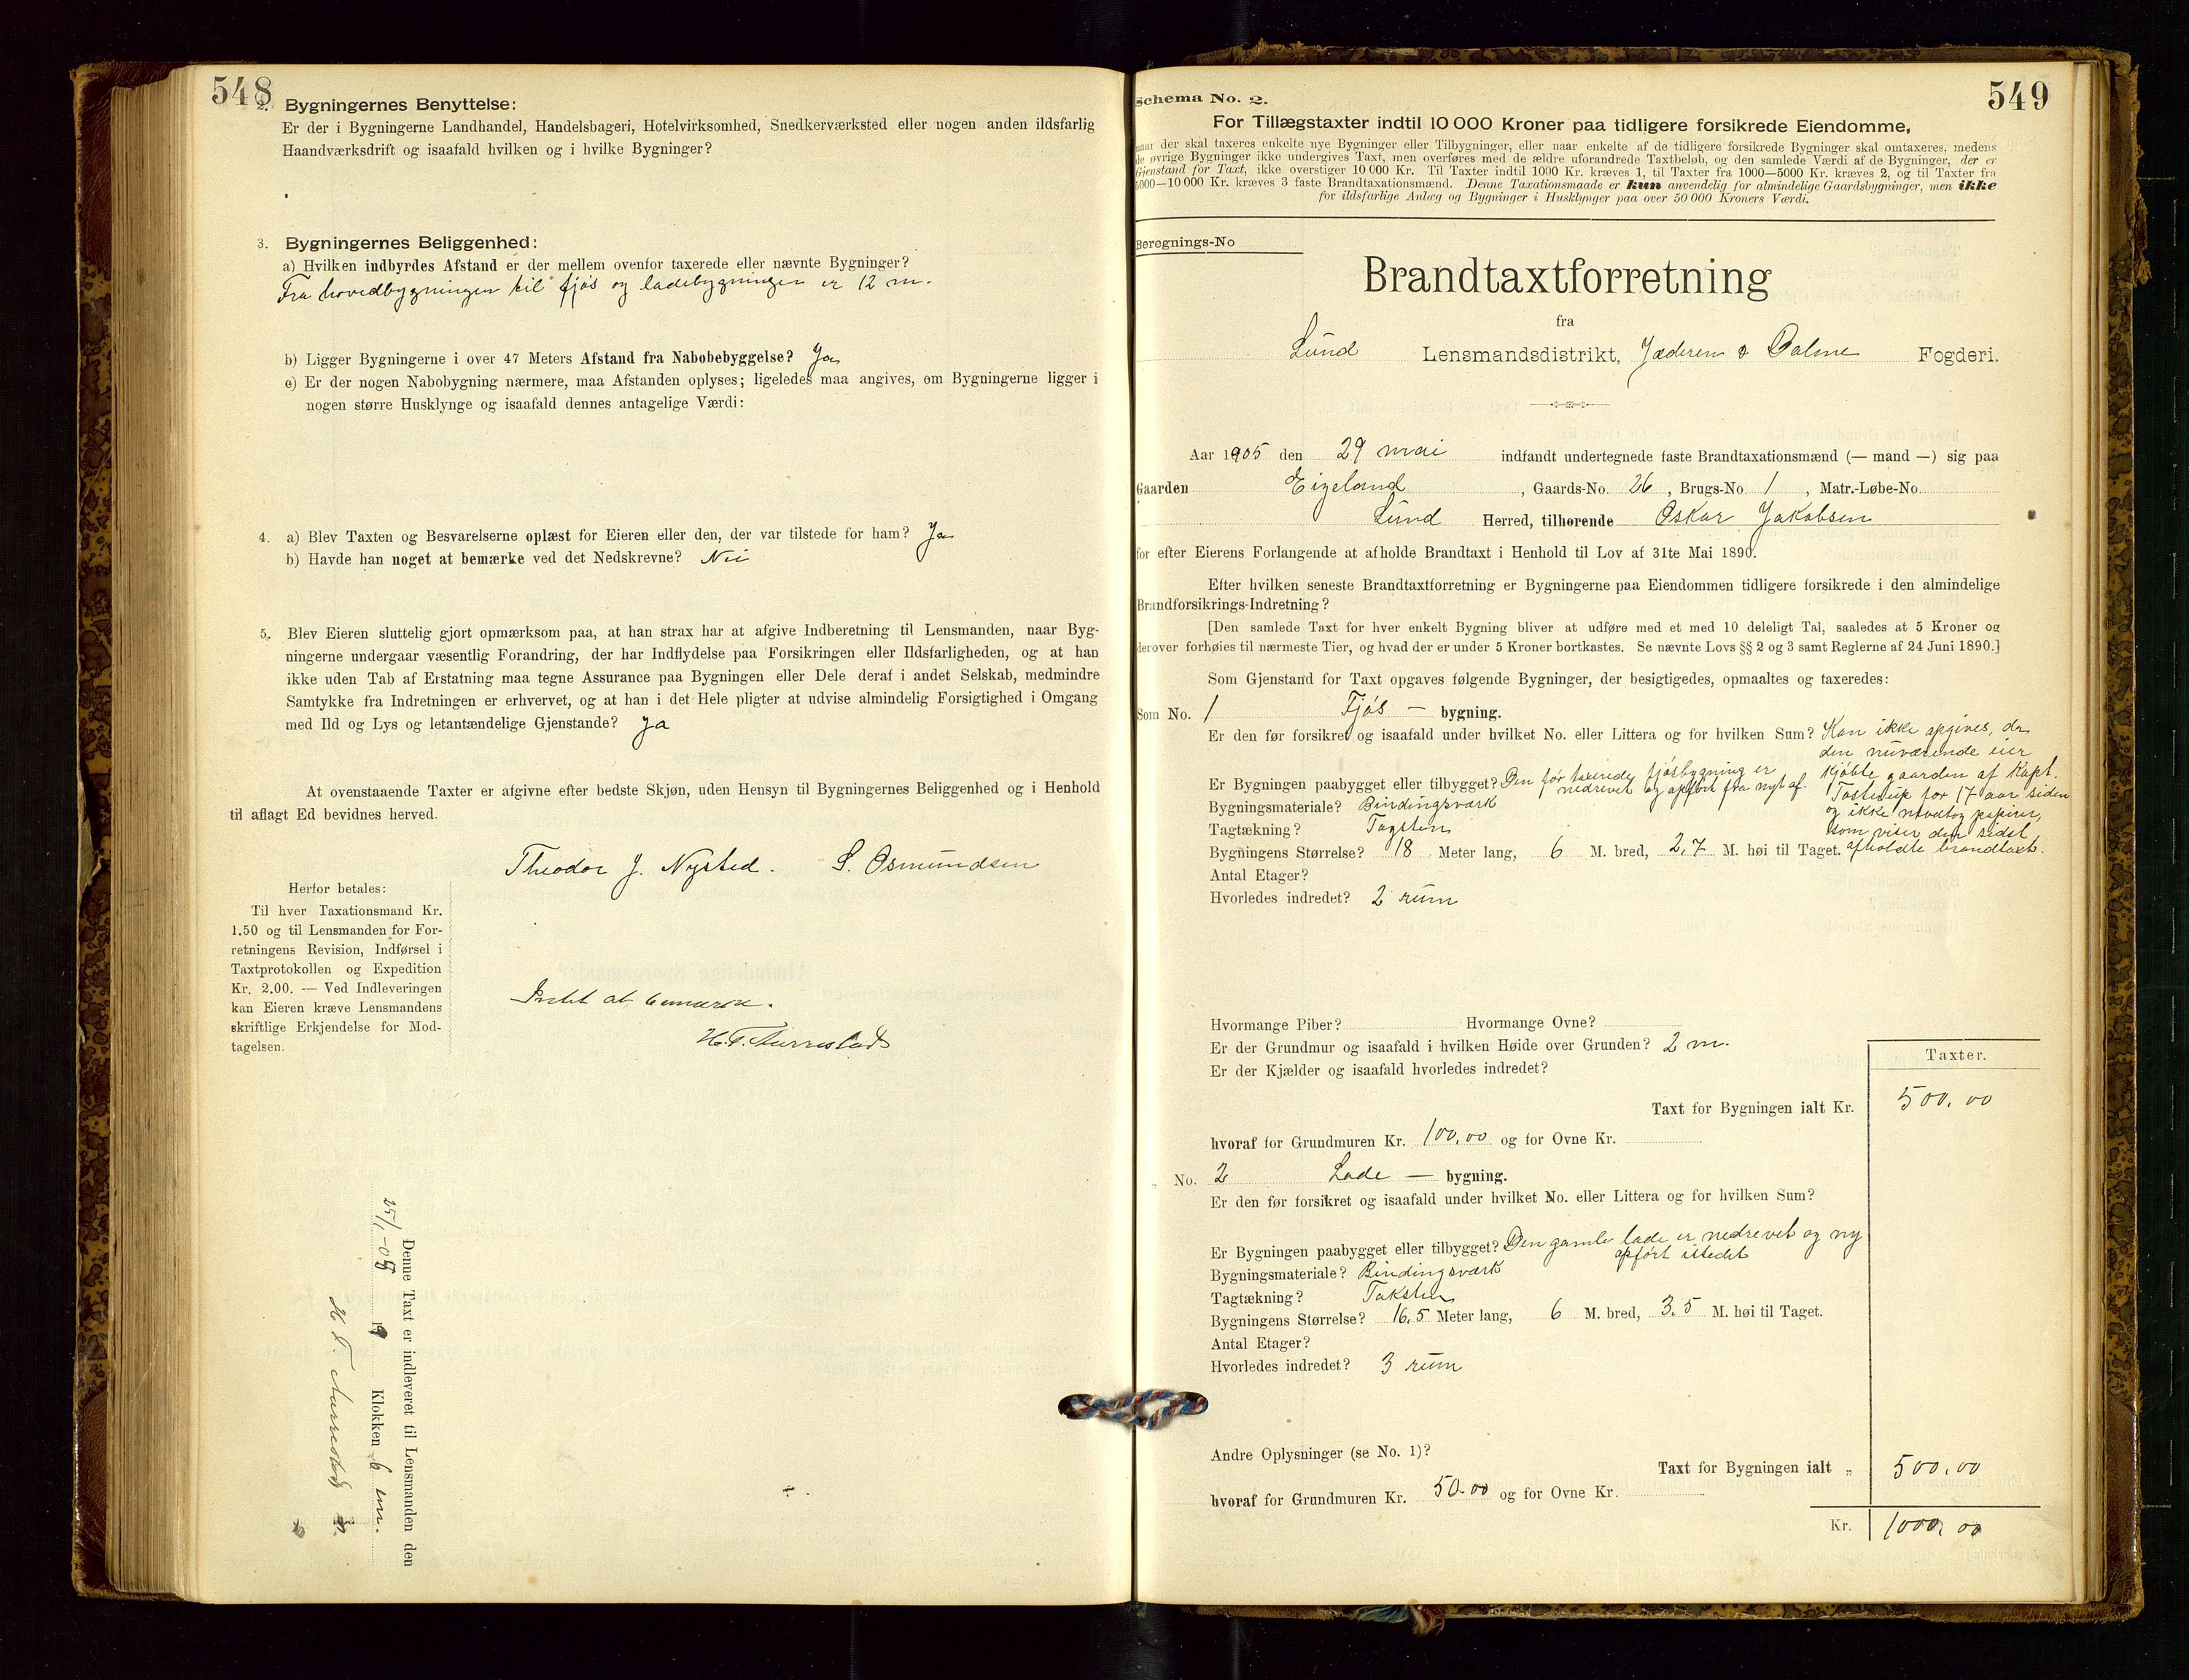 548
2. Bygningernes Benyttelse:
Er der i Bygningerne Landhandel, Handelsbageri, Hotelvirksomhed, Snedkerværksted eller nogen anden ildsfarlig
Haandværksdrift og isaafald hvilken og i hvilke Bygninger?
3. Bygningernes Beliggenhed:
a) Hvilken indbyrdes Afstand er der mellem ovenfor taxerede eller nævnte Bygninger?
Fra hovedbygningen til fjøs og ladebygningen er 12 m.
b) Ligger Bygningerne i over 47 Meters Afstand fra Nabobebyggelse? Ja
c) Er der nogen Nabobygning nærmere, maa Afstanden oplyses; ligeledes maa angives, om Bygningerne ligger i
nogen større Husklynge og isaafald dennes antagelige Værdi:
4. a) Blev Taxten og Besvarelserne oplæst for Eieren eller den, der var tilstede for ham? Ja
b) Havde han noget at bemærke ved det Nedskrevne? Nei
5. Blev Eieren sluttelig gjort opmærksom paa, at han strax har at afgive Indberetning til Lensmanden, naar Byg-
ningerne undergaar væsentlig Forandring, der har Indflydelse paa Forsikringen eller Ildsfarligheden, og at han
ikke uden Tab af Erstatning maa tegne Assurance paa Bygningen eller Dele deraf i andet Selskab, medmindre
Samtykke fra Indretningen er erhvervet, og at han i det Hele pligter at udvise almindelig Forsigtighed i Omgang
med Ild og Lys og letantændelige Gjenstande? Ja
At ovenstaaende Taxter er afgivne efter bedste Skjøn, uden Hensyn til Bygningernes Beliggenhed og i Henhold
til aflagt Ed bevidnes herved.
Theodor J. Nysted. S. Osmundsen
Herfor betales:
Til hver Taxationsmand Kr.
1.50 og til Lensmanden for For-
retningens Revision, Indførsel i
Taxtprotokollen og Expedition
Kr. 2.00. — Ved Indleveringen
kan Eieren kræve Lensmandens
skriftlige Erkjendelse for Mod-
tagelsen.
Intet at bemærke.
H. T. Aurrestad
Denne Taxt er indleveret til Lensmanden den
19 Klokken 6 em.
H T Aurrestad
549
Schema No. 2.
For Tillægstaxter indtil 10 000 Kroner paa tidligere forsikrede Eiendomme,
naar der skal taxeres enkelte nye Bygninger eller Tilbygninger, eller naar enkelte af de tidligere forsikrede Bygninger skal omtaxeres, medens
de øvrige Bygninger ikke undergives Taxt, men overføres med de ældre uforandrede Taxtbeløb, og den samlede Værdi af de Bygninger, der er
Gjenstand for Taxt, ikke overstiger 10 000 Kr. Til Taxter indtil 1000 Kr. kræves 1, til Taxter fra 1000—5000 Kr. kræves 2, og til Taxter fra
5000—10 000 Kr. kræves 3 faste Brandtaxationsmænd. Denne Taxationsmaade er kun anvendelig for almindelige Gaardsbygninger, men ikke
for ildsfarlige Anlæg og Bygninger i Husklynger paa over 50 000 Kroners Værdi.
Beregnings-No
Brandtaxtforretning
fra
Lund Lensmandsdistrikt, Jæderen & Dalene Fogderi.
Aar 1905 den 29 mai indfandt undertegnede faste Brandtaxationsmænd (— mand —) sig paa
Gaarden Eigeland, Gaards-No. 26, Brugs-No. 1, Matr.-Løbe-No.
Lund Herred, tilhørende Oskar Jakobsen
for efter Eierens Forlangende at afholde Brandtaxt i Henhold til Lov af 31te Mai 1890.
Efter hvilken seneste Brandtaxtforretning er Bygningerne paa Eiendommen tidligere forsikrede i den almindelige
Brandforsikrings-Indretning?
[Den samlede Taxt for hver enkelt Bygning bliver at udføre med et med 10 deleligt Tal, saaledes at 5 Kroner og
derover forhøies til nærmeste Tier, og hvad der er under 5 Kroner bortkastes. Se nævnte Lovs §§ 2 og 3 samt Reglerne af 24 Juni 1890.]
Som Gjenstand for Taxt opgaves følgende Bygninger, der besigtigedes, opmaaltes og taxeredes:
Som No. 1 Fjøs — bygning.
Er den før forsikret og isaafald under hvilket No. eller Littera og for hvilken Sum? Kan ikke opgives, da
den nuværende eier
kjøbte gaarden af Kapt.
for 17 aar siden
og ikke modtog papirer,
som viser den sidst
afholdte brandtaxt.
Er Bygningen paabygget eller tilbygget? Den før taxerede fjøsbygning er
nedrevet og opført fra nyt af.
Bygningsmateriale? Bindingsværk
Tagtækning? Tagsten
Bygningens Størrelse? 18 Meter lang, 6 M. bred, 2,7 M. høi til Taget.
Antal Etager?
Hvorledes indredet? 2 rum
Hvormange Piber? Hvormange Ovne?
Er der Grundmur og isaafald i hvilken Høide over Grunden? 2 m.
Er der Kjælder og isaafald hvorledes indredet?
Taxter.
Taxt for Bygningen ialt Kr. 500,00
hvoraf for Grundmuren Kr. 100,00 og for Ovne Kr.
No. 2 Lade — bygning.
Er den før forsikret og isaafald under hvilket No. eller Littera og for hvilken Sum?
Er Bygningen paabygget eller tilbygget? Den gamle lade er nedrevet og ny
opført istedet
Bygningsmateriale? Bindingsværk
Tagtækning? Taksten
Bygningens Størrelse? 16,5 Meter lang, 6 M. bred, 3,5 M. høi til Taget.
Antal Etager?
Hvorledes indredet? 3 rum
Andre Oplysninger (se No. 1)?
Taxt for Bygningen ialt „ 500,00
hvoraf for Grundmuren Kr. 50.00 og for Ovne Kr.
Kr. 1000,00